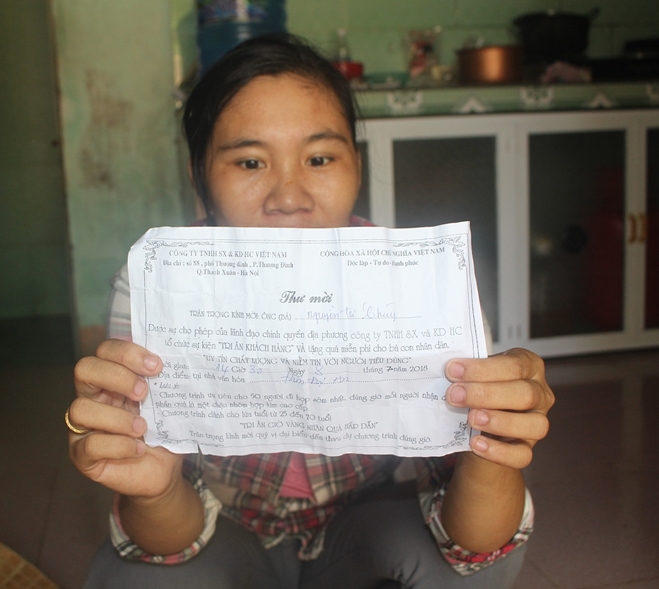 CÔNG TY TNHH SX & KD HC VIỆT NAM
Địa chỉ : số 88 , phố Thượng đình , P.Thượng Đình
Q.Thanh Xuân - Hà Nội
CỘNG HÒA XÃ HỘI CHỦ NGHĨA VIỆT NAM
Độc lập - Tự do - Hạnh phúc
Thư mời
TRÂN TRỌNG KÍNH MỜI ÔNG (BÀ) Nguyễn Thị Thúy
Được sự cho phép của lãnh đạo chính quyền địa phương công ty TNHH SX và KD HC
tổ chức sự kiện "TRI ÂN KHÁCH HÀNG" VÀ tặng quà miễn phí cho bà con nhân dân.
"UY TÍN CHẤT LƯỢNG VÀ NIỀM TIN VỚI NGƯỜI TIÊU DÙNG"
Thời gian: Ngày 8 tháng 7 năm 2018
Địa điểm: tại nhà văn hóa
* Lưu ý:
Chương trình ưu tiên cho 50 người đi họp sớm nhất, đúng giờ mỗi người nhận đ
phần quà là một chảo nhôm hợp kim cao cấp
Chương trình dành cho lứa tuổi từ 25 đến 70 tuổi
"TRI ÂN GIỜ VÀNG NHẬN QUÀ HẤP DẪN"
Trân trọng kính mời quý vị đại biểu đến tham dự chương trình đúng giờ.